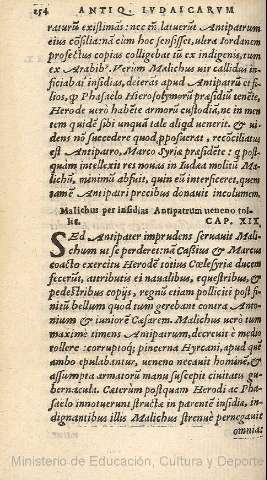 254 ANTIQ. IVDAICARVM
raturũ existimãs: nec tñ latuerũt Antipatrum
eius cõsilia: nã cùm hoc sensisset, vltra Iordanem
profectus copias colligebat tũ ex indigenis, tum
ex Arabibꝰ. Verùm Malichus vir callidus in-
ficiabat insidias, deierãs apud Antipatrũ et fi-
lios, ꝙ Phasaelo Hierosolymorũ præsidiũ tenẽte,
Herode verò habẽte armorũ custodiã, ne in men
tem quidẽ sibi vnquã tale aliqd venerit. & vi-
dens nõ succedere quod ꝓposuerat, recõciliatus
est Antipatro, Marco Syria præsidẽte: q post
quam intellexit res nouas in Iudæa moliri Ma-
lichũ, minimũ abfuit, quin eũ interficeret, quem
tamẽ Antipatri precibus donauit incolumem.
Malichus per insidias Antipatrum ueneno tol-
lit. CAP. XIX.
SEd Antipater imprudens seruauit Mali-
chum vt se perderet: nã Cassius & Marcus
coacto exercitu Herodẽ totius Cœlesyriæ ducem
fecerũt, attributis ei naualibus, equestribus, &
pedestribus copijs, regnũ etiam polliciti post fi-
nitũ bellum quod tum gerebant contra Anto-
nium & iuniorẽ Cæsarem. Malichus verò tum
maximè timens Antipatrum, decreuit è medio
tollere: corruptoq; pincerna Hyrcani, apud quẽ
ambo epulabantur, veneno necauit hominẽ, &
assumpta armatorũ manu suscepit ciuitatis gu-
bernacula. Cæterùm postquam Herodi ac Pha-
saelo innotuerunt structæ in parentẽ insidiæ, in-
dignantibus illis Malichus strenuè pernegauit
omnia:
Ministerio de Educación, Cultura y Deporte